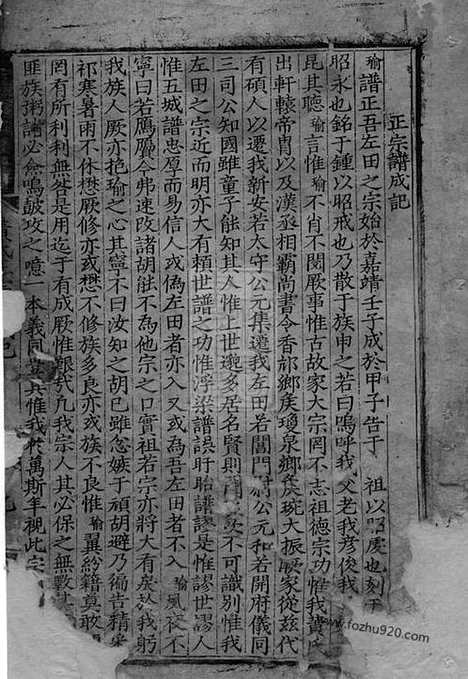 正宗譜成記
瑜譜正吾左田之宗始於嘉靖壬子成於甲子告于 祖以昭慶也刻于
昭永也銘于鍾以昭戒也乃散于族申之若曰嗚呼我父老我彥俊我
昆其聽瑜言惟瑜不肖不閱厥事惟古故家大宗罔不志祖德宗功惟我黃
出軒轅帝胄以及漢丞相霸尚書令香邟鄉矦瓊泉鄉矦琬大振厥家從茲代
有碩人以遷我新安若太守公元集遷我左田若閶門尉公元和若開府儀同
三司公知國雖童子能知其人惟上世邈多居名賢則 不可識別惟我
左田之宗近而明亦大有賴世譜之功惟浮梁譜誤盱眙譜謬是惟謬世謬人
惟五城譜忠厚而易信人或偽左田者亦入又或為吾左田者不入瑜夙夜不
寧曰若鴈鴈今弗速改諸胡能不為他宗之口實祖若宗亦將大有戾於我躬
我族人厥亦抱瑜之心其寧不曰汝知之胡巳雖忽嫉于頑胡避乃徧告精采
祁寒暑雨不休懋厥修亦或懋不修族多良亦或族不良惟瑜翼紛籍真敢
罔有所利利無然是用迄于有成厥惟艱我凡我宗人其必保之無
匪族粥譜必僉鳴鼓攻之噫一本義同 其惟我 萬斯年視此宗
www.fozhu920.com